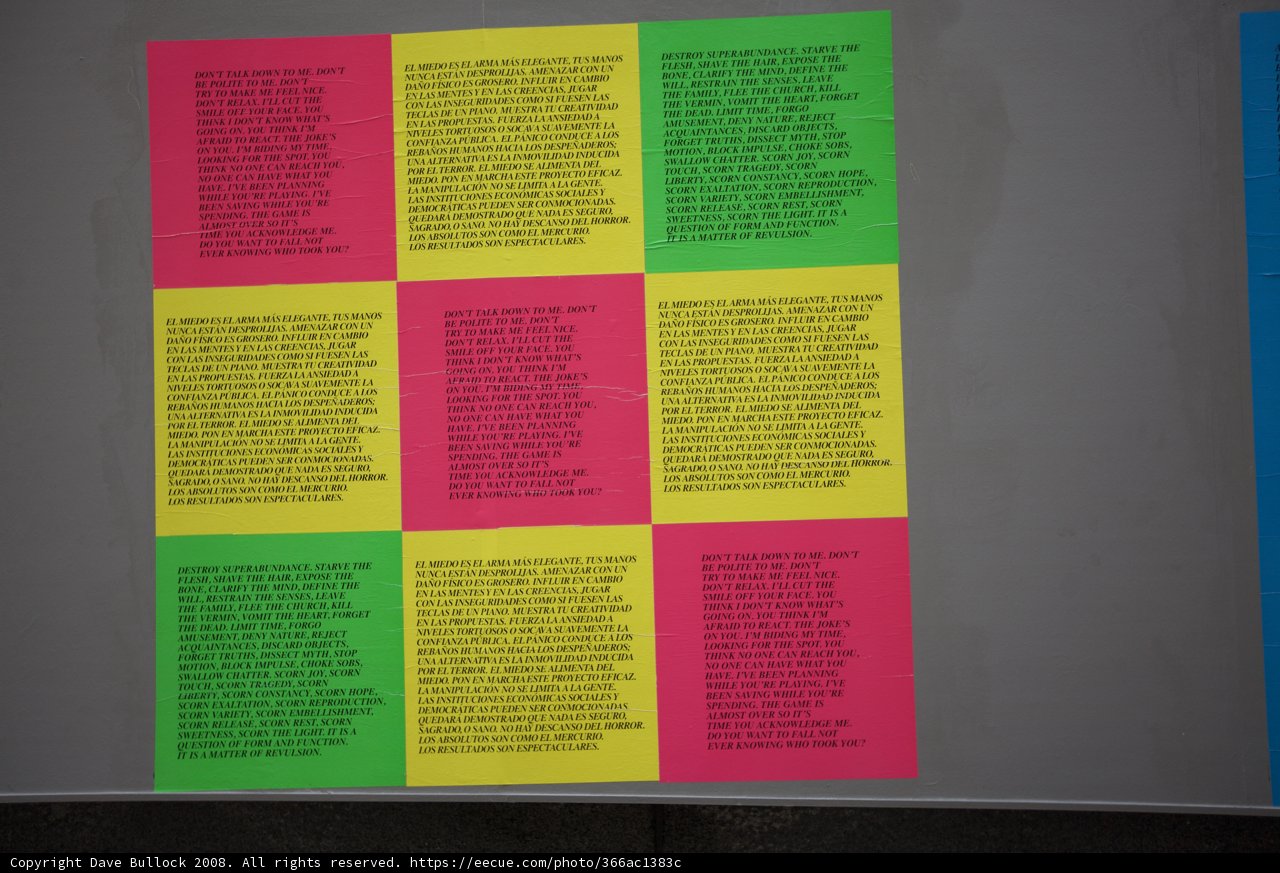 DON'T TALK DOWN TO ME. DON'T
BE POLITE TO ME. DON'T
TRY TO MAKE ME FEEL NICE.
DON'T RELAX. I'LL CUT THE
SMILE OFF YOUR FACE. YOU
THINK I DON'T KNOW WHAT'S
GOING ON. YOU THINK I'M
AFRAID TO REACT. THE JOKE'S
ON YOU. I'M BIDING MY TIME,
LOOKING FOR THE SPOT. YOU
THINK NO ONE CAN REACH YOU,
NO ONE CAN HAVE WHAT YOU
HAVE. I'VE BEEN PLANNING
WHILE YOU'RE PLAYING. I'VE
BEEN SAVING WHILE YOU'RE
SPENDING. THE GAME IS
ALMOST OVER SO IT'S
TIME YOU ACKNOWLEDGE ME.
DO YOU WANT TO FALL NOT
EVER KNOWING WHO TOOK YOU?
EL MIEDO ES EL ARMA MÁS ELEGANTE, TUS MANOS
NUNCA ESTÁN DESPROLIJAS. AMENAZAR CON UN
DAÑO FÍSICO ES GROSERO. INFLUIR EN CAMBIO
EN LAS MENTES Y EN LAS CREENCIAS, JUGAR
CON LAS INSEGURIDADES COMO SI FUESEN LAS
TECLAS DE UN PIANO. MUESTRA TU CREATIVIDAD
EN LAS PROPUESTAS. FUERZA LA ANSIEDAD A
NIVELES TORTUOSOS O SOCAVA SUAVEMENTE LA
CONFIANZA PÚBLICA. EL PÁNICO CONDUCE A LOS
REBAÑOS HUMANOS HACIA LOS DESPEÑADEROS;
UNA ALTERNATIVA ES LA INMOVILIDAD INDUCIDA
POR EL TERROR. EL MIEDO SE ALIMENTA DEL
MIEDO. PON EN MARCHA ESTE PROYECTO EFICAZ.
LA MANIPULACIÓN NO SE LIMITA A LA GENTE.
LAS INSTITUCIONES ECONÓMICAS SOCIALES Y
DEMOCRÁTICAS PUEDEN SER CONMOCIONADAS.
QUEDARÁ DEMOSTRADO QUE NADA ES SEGURO,
SAGRADO, O SANO. NO HAY DESCANSO DEL HORROR.
LOS ABSOLUTOS SON COMO EL MERCURIO.
LOS RESULTADOS SON ESPECTACULARES.
DESTROY SUPERABUNDANCE. STARVE THE
FLESH, SHAVE THE HAIR, EXPOSE THE
BONE, CLARIFY THE MIND, DEFINE THE
WILL, RESTRAIN THE SENSES, LEAVE
THE FAMILY, FLEE THE CHURCH, KILL
THE VERMIN, VOMIT THE HEART, FORGET
THE DEAD. LIMIT TIME, FORGO
AMUSEMENT, DENY NATURE, REJECT
ACQUAINTANCES, DISCARD OBJECTS,
FORGET TRUTHS, DISSECT MYTH, STOP
MOTION, BLOCK IMPULSE, CHOKE SOBS,
SWALLOW CHATTER. SCORN JOY, SCORN
TOUCH, SCORN TRAGEDY, SCORN
LIBERTY, SCORN CONSTANCY, SCORN HOPE,
SCORN EXALTATION, SCORN REPRODUCTION,
SCORN VARIETY, SCORN EMBELLISHMENT,
SCORN RELEASE, SCORN REST, SCORN
SWEETNESS, SCORN THE LIGHT. IT IS A
QUESTION OF FORM AND FUNCTION.
IT IS A MATTER OF REVULSION.
EL MIEDO ES EL ARMA MÁS ELEGANTE, TUS MANOS
NUNCA ESTÁN DESPROLIJAS. AMENAZAR CON UN
DAÑO FÍSICO ES GROSERO. INFLUIR EN CAMBIO
EN LAS MENTES Y EN LAS CREENCIAS, JUGAR
CON LAS INSEGURIDADES COMO SI FUESEN LAS
TECLAS DE UN PIANO. MUESTRA TU CREATIVIDAD
EN LAS PROPUESTAS. FUERZA LA ANSIEDAD A
NIVELES TORTUOSOS O SOCAVA SUAVEMENTE LA
CONFIANZA PÚBLICA. EL PÁNICO CONDUCE A LOS
REBAÑOS HUMANOS HACIA LOS DESPEÑADEROS;
UNA ALTERNATIVA ES LA INMOVILIDAD INDUCIDA
POR EL TERROR. EL MIEDO SE ALIMENTA DEL
MIEDO. PON EN MARCHA ESTE PROYECTO EFICAZ.
LA MANIPULACIÓN NO SE LIMITA A LA GENTE.
LAS INSTITUCIONES ECONÓMICAS SOCIALES Y
DEMOCRÁTICAS PUEDEN SER CONMOCIONADAS.
QUEDARÁ DEMOSTRADO QUE NADA ES SEGURO,
SAGRADO, O SANO. NO HAY DESCANSO DEL HORROR.
LOS ABSOLUTOS SON COMO EL MERCURIO.
LOS RESULTADOS SON ESPECTACULARES.
DON'T TALK DOWN TO ME. DON'T
BE POLITE TO ME. DON'T
TRY TO MAKE ME FEEL NICE.
DON'T RELAX. I'LL CUT THE
SMILE OFF YOUR FACE. YOU
THINK I DON'T KNOW WHAT'S
GOING ON. YOU THINK I'M
AFRAID TO REACT. THE JOKE'S
ON YOU. I'M BIDING MY TIME,
LOOKING FOR THE SPOT. YOU
THINK NO ONE CAN REACH YOU,
NO ONE CAN HAVE WHAT YOU
HAVE. I'VE BEEN PLANNING
WHILE YOU'RE PLAYING. I'VE
BEEN SAVING WHILE YOU'RE
SPENDING. THE GAME IS
ALMOST OVER SO IT'S
TIME YOU ACKNOWLEDGE ME.
DO YOU WANT TO FALL NOT
EVER KNOWING WHO TOOK YOU?
EL MIEDO ES EL ARMA MÁS ELEGANTE, TUS MANOS
NUNCA ESTÁN DESPROLIJAS. AMENAZAR CON UN
DAÑO FÍSICO ES GROSERO. INFLUIR EN CAMBIO
EN LAS MENTES Y EN LAS CREENCIAS, JUGAR
CON LAS INSEGURIDADES COMO SI FUESEN LAS
TECLAS DE UN PIANO. MUESTRA TU CREATIVIDAD
EN LAS PROPUESTAS. FUERZA LA ANSIEDAD A
NIVELES TORTUOSOS O SOCAVA SUAVEMENTE LA
CONFIANZA PÚBLICA. EL PÁNICO CONDUCE A LOS
REBAÑOS HUMANOS HACIA LOS DESPEÑADEROS;
UNA ALTERNATIVA ES LA INMOVILIDAD INDUCIDA
POR EL TERROR. EL MIEDO SE ALIMENTA DEL
MIEDO. PON EN MARCHA ESTE PROYECTO EFICAZ.
LA MANIPULACIÓN NO SE LIMITA A LA GENTE.
LAS INSTITUCIONES ECONÓMICAS SOCIALES Y
DEMOCRÁTICAS PUEDEN SER CONMOCIONADAS.
QUEDARÁ DEMOSTRADO QUE NADA ES SEGURO,
SAGRADO, O SANO. NO HAY DESCANSO DEL HORROR.
LOS ABSOLUTOS SON COMO EL MERCURIO.
LOS RESULTADOS SON ESPECTACULARES.
DESTROY SUPERABUNDANCE. STARVE THE
FLESH, SHAVE THE HAIR, EXPOSE THE
BONE, CLARIFY THE MIND, DEFINE THE
WILL, RESTRAIN THE SENSES, LEAVE
THE FAMILY, FLEE THE CHURCH, KILL
THE VERMIN, VOMIT THE HEART, FORGET
THE DEAD. LIMIT TIME, FORGO
AMUSEMENT, DENY NATURE, REJECT
ACQUAINTANCES, DISCARD OBJECTS,
FORGET TRUTHS, DISSECT MYTH, STOP
MOTION, BLOCK IMPULSE, CHOKE SOBS,
SWALLOW CHATTER. SCORN JOY, SCORN
TOUCH, SCORN TRAGEDY, SCORN
LIBERTY, SCORN CONSTANCY, SCORN HOPE,
SCORN EXALTATION, SCORN REPRODUCTION,
SCORN VARIETY, SCORN EMBELLISHMENT,
SCORN RELEASE, SCORN REST, SCORN
SWEETNESS, SCORN THE LIGHT. IT IS A
QUESTION OF FORM AND FUNCTION.
IT IS A MATTER OF REVULSION.
EL MIEDO ES EL ARMA MÁS ELEGANTE, TUS MANOS
NUNCA ESTÁN DESPROLIJAS. AMENAZAR CON UN
DAÑO FÍSICO ES GROSERO. INFLUIR EN CAMBIO
EN LAS MENTES Y EN LAS CREENCIAS, JUGAR
CON LAS INSEGURIDADES COMO SI FUESEN LAS
TECLAS DE UN PIANO. MUESTRA TU CREATIVIDAD
EN LAS PROPUESTAS. FUERZA LA ANSIEDAD A
NIVELES TORTUOSOS O SOCAVA SUAVEMENTE LA
CONFIANZA PÚBLICA. EL PÁNICO CONDUCE A LOS
REBAÑOS HUMANOS HACIA LOS DESPEÑADEROS;
UNA ALTERNATIVA ES LA INMOVILIDAD INDUCIDA
POR EL TERROR. EL MIEDO SE ALIMENTA DEL
MIEDO. PON EN MARCHA ESTE PROYECTO EFICAZ.
LA MANIPULACIÓN NO SE LIMITA A LA GENTE.
LAS INSTITUCIONES ECONÓMICAS SOCIALES Y
DEMOCRÁTICAS PUEDEN SER CONMOCIONADAS.
QUEDARÁ DEMOSTRADO QUE NADA ES SEGURO,
SAGRADO, O SANO. NO HAY DESCANSO DEL HORROR.
LOS ABSOLUTOS SON COMO EL MERCURIO.
LOS RESULTADOS SON ESPECTACULARES.
DON'T TALK DOWN TO ME. DON'T
BE POLITE TO ME. DON'T
TRY TO MAKE ME FEEL NICE.
DON'T RELAX. I'LL CUT THE
SMILE OFF YOUR FACE. YOU
THINK I DON'T KNOW WHAT'S
GOING ON. YOU THINK I'M
AFRAID TO REACT. THE JOKE'S
ON YOU. I'M BIDING MY TIME,
LOOKING FOR THE SPOT. YOU
THINK NO ONE CAN REACH YOU,
NO ONE CAN HAVE WHAT YOU
HAVE. I'VE BEEN PLANNING
WHILE YOU'RE PLAYING. I'VE
BEEN SAVING WHILE YOU'RE
SPENDING. THE GAME IS
ALMOST OVER SO IT'S
TIME YOU ACKNOWLEDGE ME.
DO YOU WANT TO FALL NOT
EVER KNOWING WHO TOOK YOU?
Copyright Dave Bullock 2008. All rights reserved. https://eecue.com/photo/366ac1383c